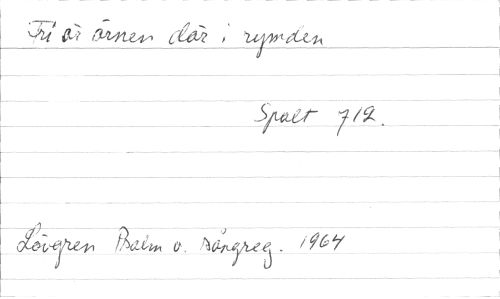 Fri är örnen där i rymden
Spalt 712.
Lövgren Psalm o. sångreg. 1964